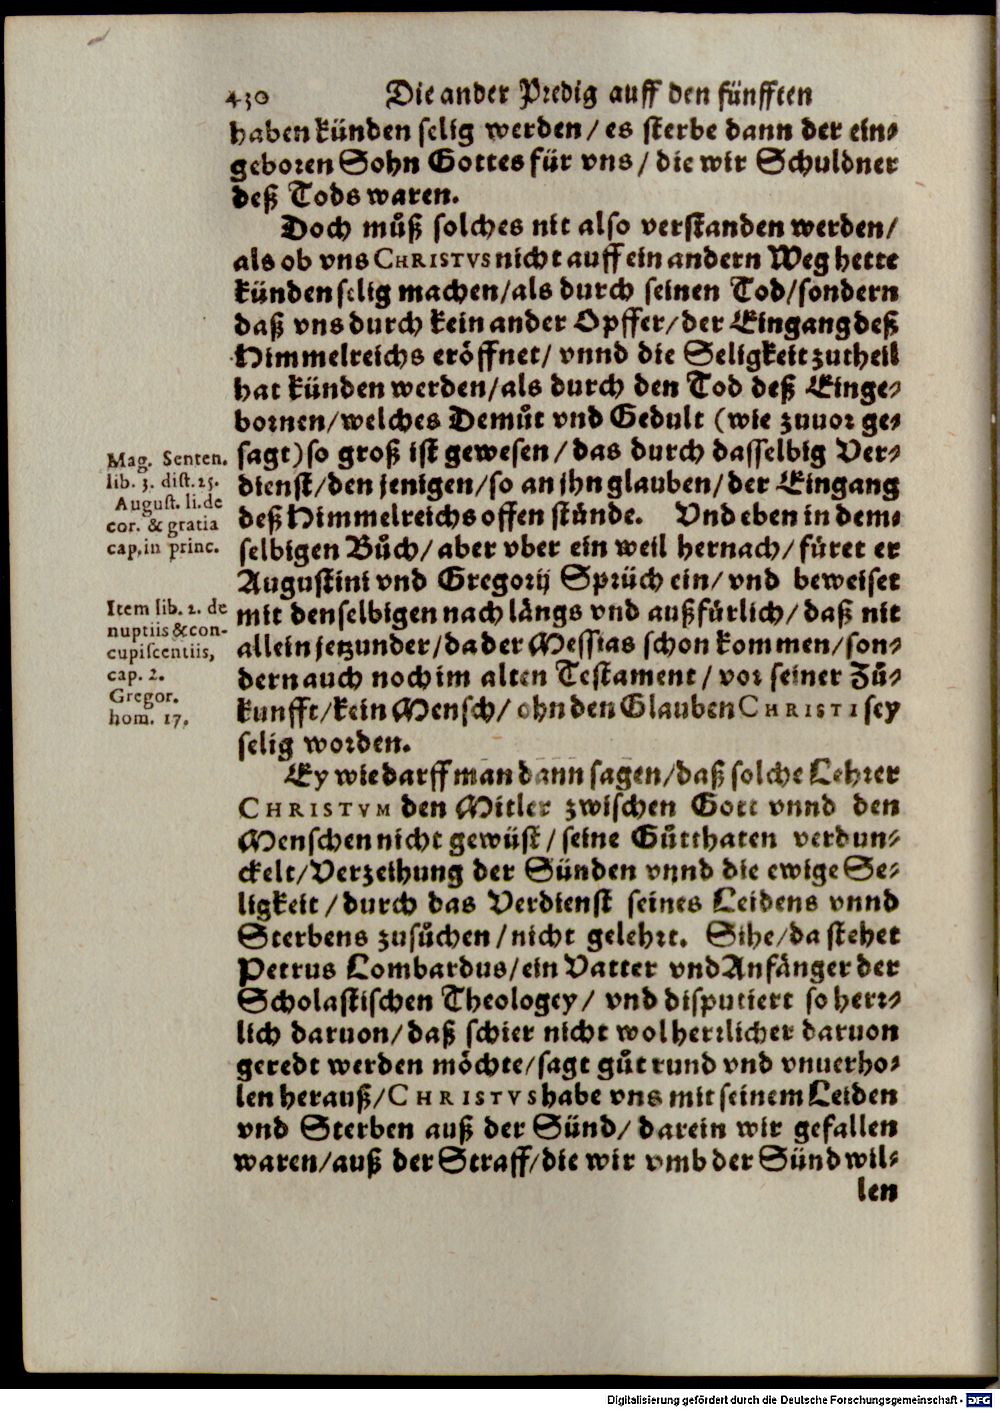 430 Die ander Predig auff den fünfften
haben künden selig werden/ es sterbe dann der ein⸗
geboren Sohn Gottes für vns/ die wir Schuldner
deß Tods waren.
Doch můß solches nit also verstanden werden/
als ob vns CHRISTVS nicht auff ein andern Weg hette
künden selig machen/als durch seinen Tod/sondern
daß vns durch kein ander Opffer/der Eingang deß
Himmelreichs eröffnet/ vnnd die Seligkeit zutheil
hat künden werden/als durch den Tod deß Einge⸗
bornen/welches Demůt vnd Gedult (wie zuuor ge⸗
sagt) so groß ist gewesen/das durch dasselbig Ver⸗
dienst/den jenigen/so an jhn glauben/der Eingang
deß Himmelreichs offen stünde. Vnd eben in dem⸗
selbigen Bůch/aber vber ein weil hernach/füret er
Augustini vnd Gregorij Sprüch ein/ vnd beweiset
mit denselbigen nach längs vnd außfürlich/daß nit
allein jetzunder/da der Messias schon kommen/son⸗
dern auch noch im alten Testament/ vor seiner Zů⸗
kunfft/kein Mensch/ohn den Glauben CHRISTI sey
selig worden.
Mag. Senten.
lib. 3. dist. 25.
August. li. de
cor. & gratia
cap, in princ.
Item lib. 2. de
nuptiis & con-
cupiscentiis,
cap. 2.
Gregor.
hom. 17.
Ey wie darff man dann sagen/daß solche Lehrer
CHRISTVM den Mitler zwischen Gott vnnd den
Menschen nicht gewüst/seine Gůtthaten verdun⸗
ckelt/Verzeihung der Sünden vnnd die ewige Se⸗
ligkeit/durch das Verdienst seines Leidens vnnd
Sterbens zusůchen/nicht gelehrt. Sihe/da stehet
Petrus Lombardus/ein Vatter vnd Anfänger der
Scholastischen Theologey/ vnd disputiert so herr⸗
lich daruon/daß schier nicht wol herrlicher daruon
geredt werden möchte/sagt gůt rund vnd vnuerho⸗
len herauß/CHRISTVS habe vns mit seinem Leiden
vnd Sterben auß der Sünd/darein wir gefallen
waren/auß der Straff/die wir vmb der Sünd wil⸗
len
Digitalisierung gefördert durch die Deutsche Forschungsgemeinschaft - DFG